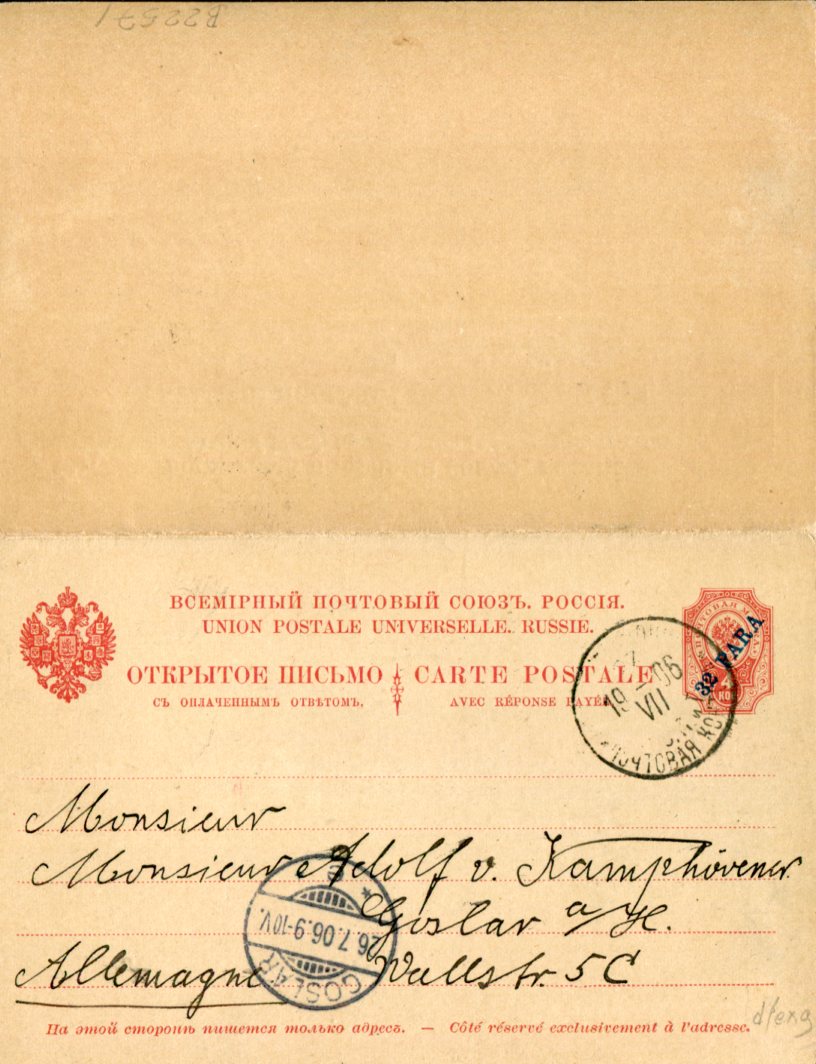 B22571
ВСЕМІРНЫЙ ПОЧТОВЫЙ СОЮЗЪ. РОССІЯ.
UNION POSTALE UNIVERSELLE. RUSSIE.
ОТКРЫТОЕ ПИСЬМО
CARTE POSTALE
СЪ ОПЛАЧЕННЫМЪ ОТВѢТОМЪ.
AVEC RÉPONSE PAYÉE
32 PARA
19 VII 06
ПОЧТОВАЯ КОН
Monsieur
Monsieur Adolf v. Kamphövener
Goslar a/H.
Allemagne Wallstr. 5C
GOSLAR
26.7.06.9-10V.
На этой сторонѣ пишется только адресъ. — Côté réservé exclusivement à l'adresse.